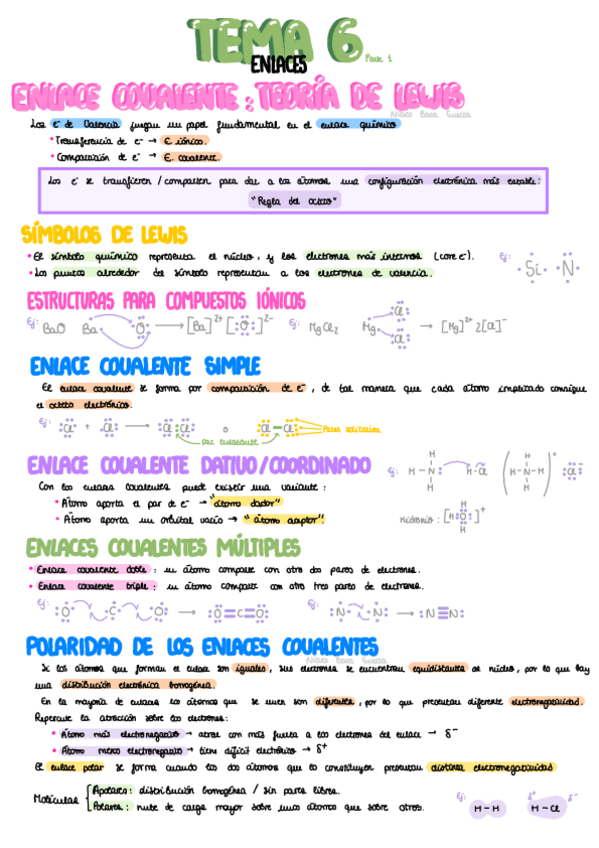 TEMA 6
ENLACES
Parte 1
ENLACE COVALENTE: TEORÍA DE LEWIS
Los e⁻ de Valencia juegan un papel fundamental en el enlace químico
• Transferencia de e⁻ → E. iónico.
• Compartición de e⁻ → E. covalente.
Los e⁻ se transfieren/comparten para dar a los átomos una configuración electrónica más estable:
"Regla del octeto"
SÍMBOLOS DE LEWIS
• El símbolo químico representa el núcleo, y los electrones más internos (core e⁻).
• Los puntos alrededor del símbolo representan a los electrones de valencia.
Ej: Si N
ESTRUCTURAS PARA COMPUESTOS IÓNICOS
Ej: BaO Ba O → [Ba]²⁺ [O]²⁻ Ej: MgCl₂ Mg Cl Cl → [Mg]²⁺ 2[Cl]⁻
ENLACE COVALENTE SIMPLE
El enlace covalente se forma por compartición de e⁻, de tal manera que cada átomo implicado consigue
el octeto electrónico.
Ej: Cl + Cl → Cl Cl o Cl — Cl Pares solitarios
par enlazante
ENLACE COVALENTE DATIVO/COORDINADO
Con los enlaces covalentes puede existir una variante:
• Átomo aporta el par de e⁻ → "átomo dador"
• Átomo aporta un orbital vacío → "átomo aceptor".
Ej: H H-N H H H-Cl (H H-N-H H)⁺ Cl⁻
Hidronio: [H O H H]⁺
ENLACES COVALENTES MÚLTIPLES
• Enlace covalente doble: un átomo comparte con otro dos pares de electrones.
• Enlace covalente triple: un átomo comparte con otro tres pares de electrones.
Ej: O C O → O=C=O Ej: N N → N≡N
POLARIDAD DE LOS ENLACES COVALENTES
Si los átomos que forman el enlace son iguales, sus electrones se encuentran equidistantes al núcleo, por lo que hay
una distribución electrónica homogénea.
En la mayoría de enlaces los átomos que se unen son diferentes, por lo que presentan diferente electronegatividad.
Repercute la atracción sobre los electrones:
• Átomo más electronegativo → atrae con más fuerza a los electrones del enlace → δ⁻
• Átomo menos electronegativo → tiene déficit electrónico → δ⁺
El enlace polar se forma cuando los dos átomos que lo constituyen presentan distinta electronegatividad
Moléculas { Apolares: distribución homogénea / sin pares libres.
Polares: nube de carga mayor sobre unos átomos que sobre otros.
Ej: H-H δ⁺ H-Cl δ⁻